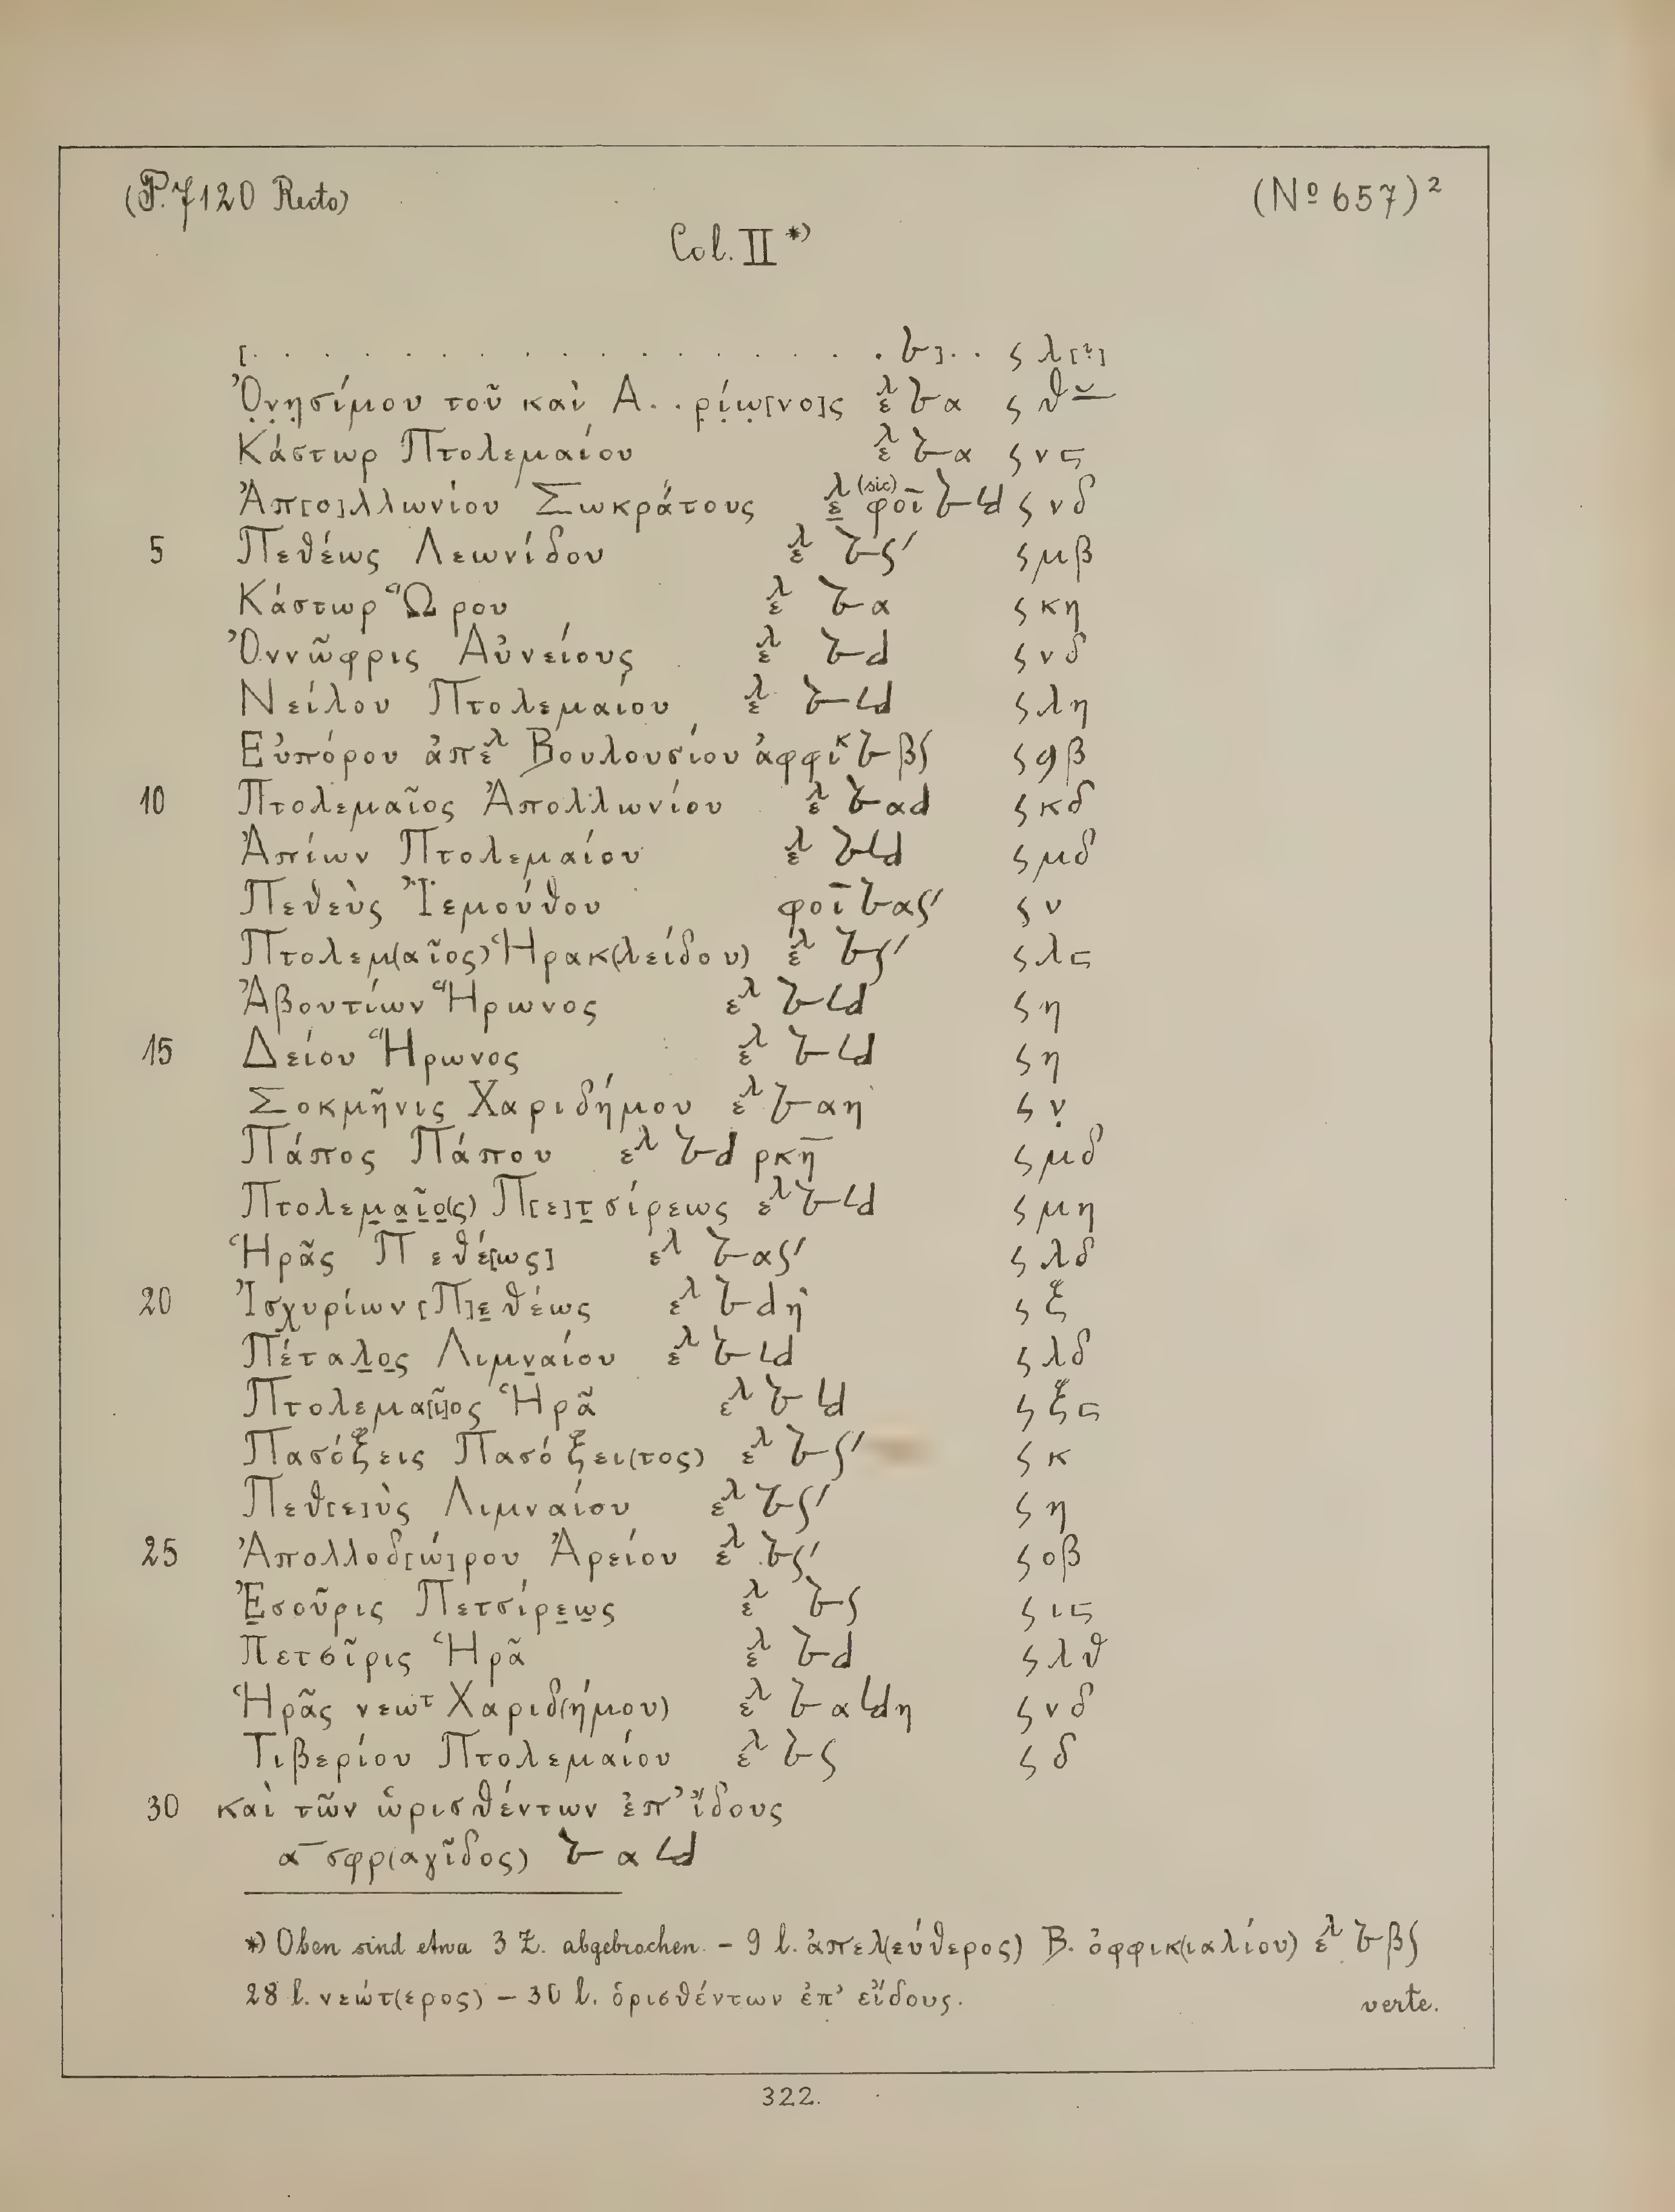 (P. 7120 Recto) (Nº 657)²
Col. II *)
[. . . . . . . . . . . . . . . . . 𐆄]. . ς λ[?]
Ὀ̣ν̣η̣σίμου τοῦ καὶ Α. . ρ̣ί̣ω̣[νο]ς ελ 𐆄 α ς θ
Κάστωρ Πτολεμαίου ελ 𐆄 α ς νϛ
Ἀπ[ο]λλωνίου Σωκράτους ελ (sic) φοῑ 𐆄 𐅵d ς νδ
5 Πεθέως Λεωνίδου ελ 𐆄 ς′ ς μβ
Κάστωρ Ὥρου ελ 𐆄 α ς κη
Ὀννῶφρις Αὐνείους ελ 𐆄 d ς νδ
Νείλου Πτολεμαίου ελ 𐆄 𐅵d ς λη
Εὐπόρου ἀπελ Βουλουσίου ἀφφικ 𐆄 βʃ ς ϥβ
10 Πτολεμαῖος Ἀπολλωνίου ελ 𐆄 αd ς κδ
Ἀπίων Πτολεμαίου ελ 𐆄 𐅵d ς μδ
Πεθεὺς Ἰεμούθου φοῑ 𐆄 ας′ ς ν
Πτολεμ(αῖος) Ἡρακ(λείδου) ελ 𐆄 ς′ ς λϛ
Ἀβουτίων Ἥρωνος ελ 𐆄 𐅵d ς η
15 Δείου Ἥρωνος ελ 𐆄 𐅵d ς η
Σοκμῆνις Χαριδήμου ελ 𐆄 αη ς ν̣
Πάπος Πάπου ελ 𐆄 d ρκη̄ ς μδ
Πτολεμ̣α̣ῖ̣ο̣(ς) Π[ε]τ̣σίρεως ελ 𐆄 𐅵d ς μη
Ἡρᾶς Πεθέ[ως] ελ 𐆄 ας′ ς λδ
20 Ἰσχυρίων [Π]ε̣θέως ελ 𐆄 dη ς ξ
Πέταλ̣ο̣ς Λιμν̣αίου ελ 𐆄 𐅵d ς λδ
Πτολεμα[ῖ]ος Ἡρᾶ ελ 𐆄 𐅵d ς ξϛ
Πασόξεις Πασόξει(τος) ελ 𐆄 ς′ ς κ
Πεθ[ε]ὺς Λιμναίου ελ 𐆄 ς′ ς η
25 Ἀπολλοδ[ώ]ρου Ἀρείου ελ 𐆄 ς′ ς οβ
Ἐ̣σοῦρις Πετσίρε̣ω̣ς ελ 𐆄 ς ς ιϛ
Πετσῖρις Ἡρᾶ ελ 𐆄 d ς λθ
Ἡρᾶς νεωτ Χαριδ(ήμου) ελ 𐆄 α𐅵dη ς νδ
Τιβερίου Πτολεμαίου ελ 𐆄 ς ς δ
30 καὶ τῶν ὡρισθέντων ἐπ’ ἴδους
ᾱ σφρ(αγῖδος) 𐆄 α 𐅵d
*) Oben sind etwa 3 Z. abgebrochen. – 9 l. ἀπελ(εύθερος) Β. ὀφφικ(ιαλίου) ελ 𐆄 βʃ
28 l. νεώτ(ερος) – 30 l. ὁρισθέντων ἐπ’ εἴδους.
verte.
322.